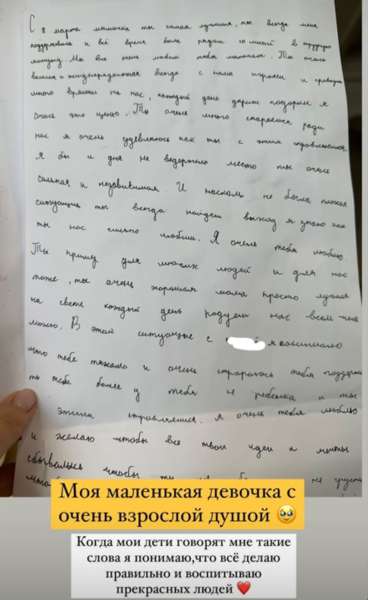 С 8 марта мамочка ты самая лучшая, ты всегда меня
поддерживала и всё время была рядом со мной в трудную
минуту. Мы все очень любим тебя мамочка. Ты очень
весёлая и всегда с нами играешь и
много времени на нас, каждый день даришь подарки я
очень это ценю. Ты очень много стараешься ради
нас я очень удивляюсь как ты с этим справляешься
я бы и дня не выдержала место ты очень
сильная и независимая И насколько не была плохая
ситуация ты всегда найдёшь выход я знаю как
ты нас сильно любишь. Я очень тебя люблю
Ты пример для многих людей и для нас
тоже, ты очень хорошая мама просто лучшая
на свете каждый день радуешь нас всем чем
можно. В этой ситуации с я понимаю
что тебе тяжело и очень стараюсь тебя поддерж
ты тебе более у тебя 4 ребёнка и ты
этим справляешся. я очень тебя люблю
и желаю чтобы все твои идеи и мечты
сбывались чтобы ты не
Моя маленькая девочка с
очень взрослой душой 🥹
Когда мои дети говорят мне такие
слова я понимаю,что всё делаю
правильно и воспитываю
прекрасных людей ❤️